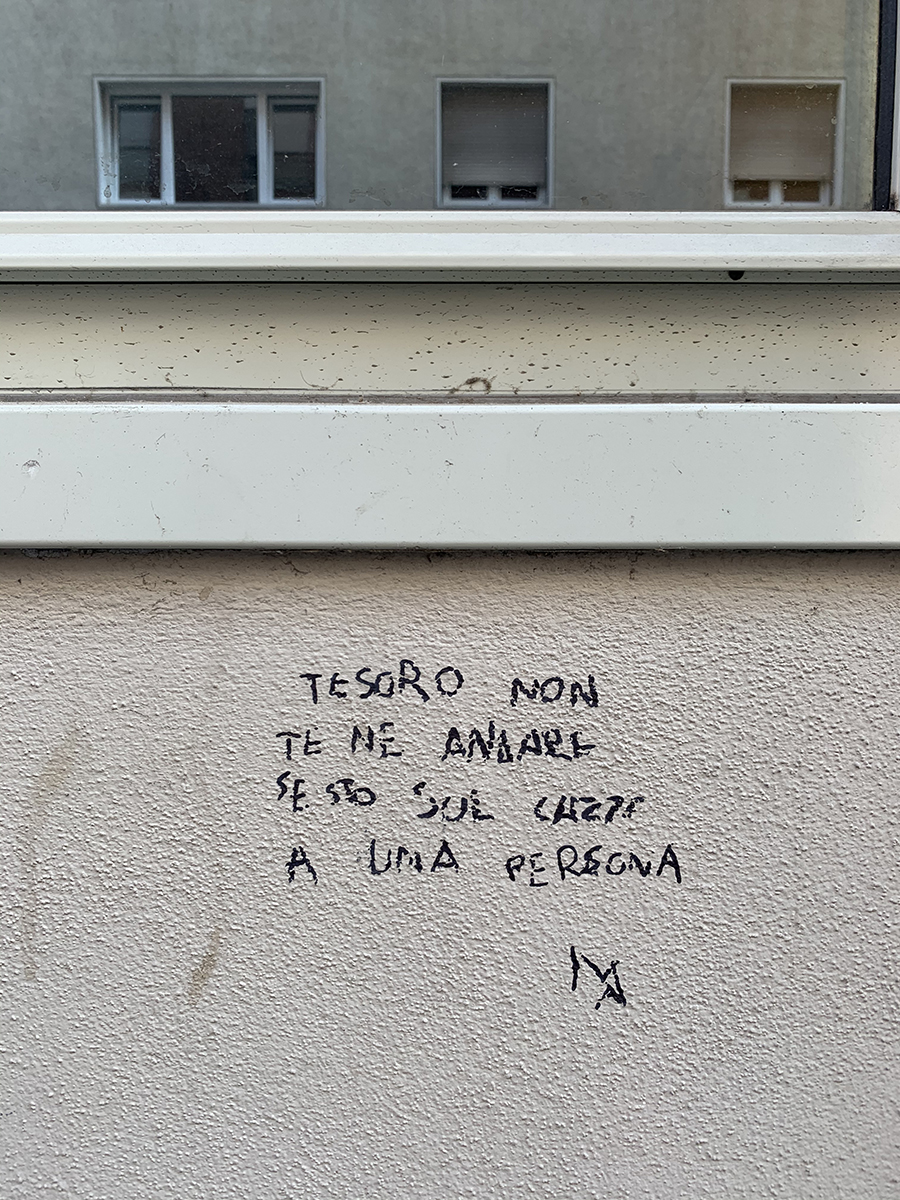 TESORO NON
TE NE ANDARE
SE STO SUL CAZZO
A UNA PERSONA
MA